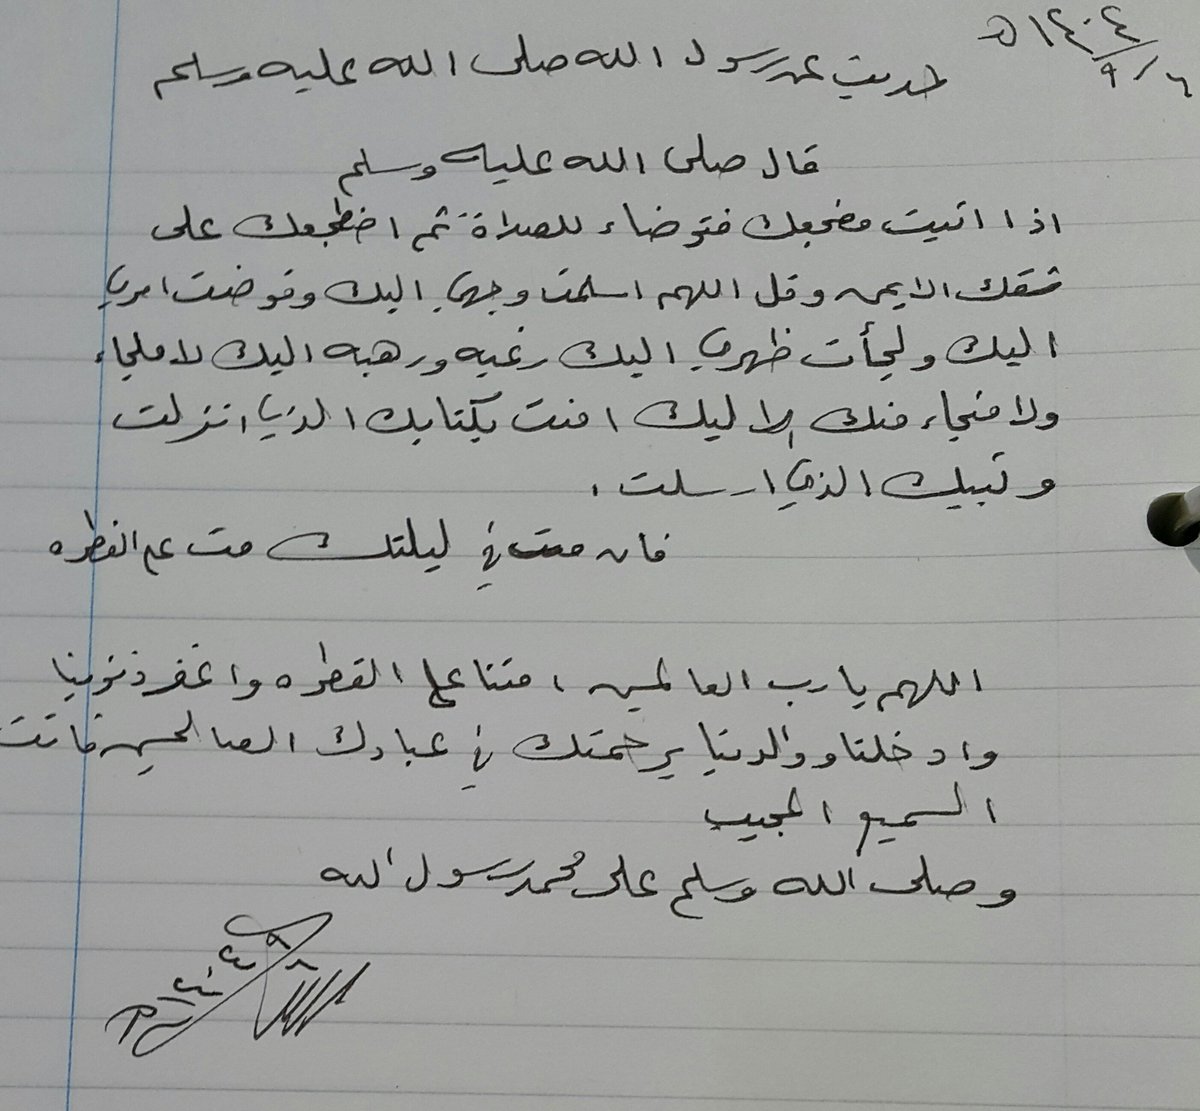 ١٤٠٤هـ
٦/٩
حديث عن رسول الله صلى الله عليه وسلم
قال صلى الله عليه وسلم
اذا اتيت مضجعك فتوضاء للصلاة ثم اضطجعك على
شقك الايمن وقل اللهم اسلمت وجهي اليك وفوضت امري
اليك ولجأت ظهري اليك رغبه ورهبه اليك لا ملجاء
ولا منجاء منك الا ليك امنت بكتابك الذي انزلت
ونبيك الذي ارسلت،
فان مت في ليلتك مت على الفطره
اللهم يا رب العالمين امتنا على الفطره واغفر ذنوبنا
وادخلنا ووالدينا برحمتك في عبادك الصالحين فانت
السميع المجيب
وصلى الله وسلم على محمد رسول الله
١٤٠٤